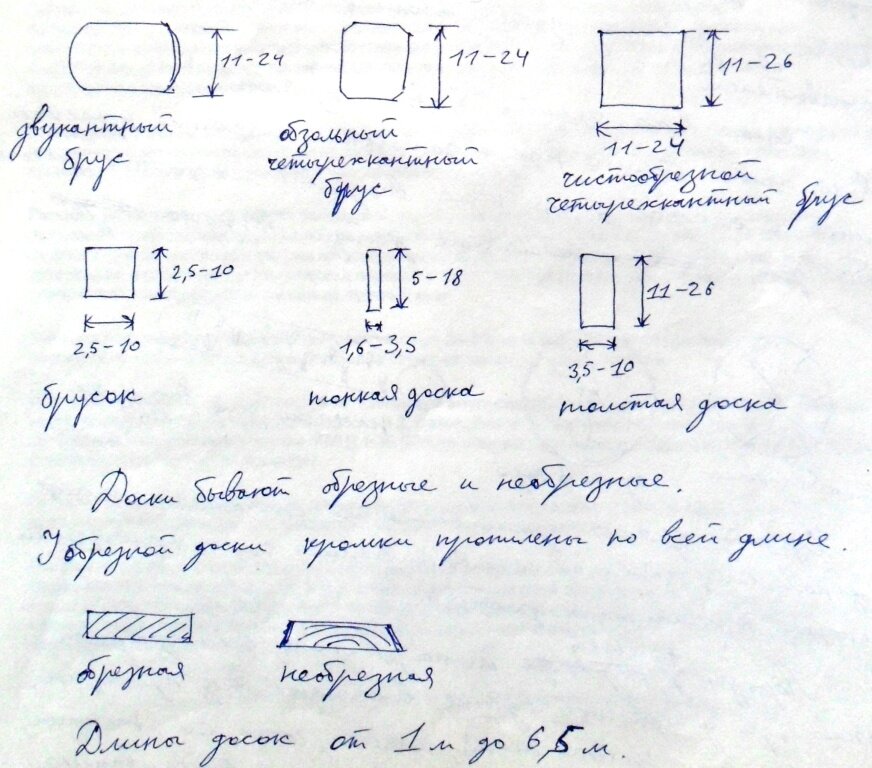 11-24
11-24
11-26
11-24
двукантный
брус
обзольный
четырехкантный
брус
чистообрезной
четырехкантный брус
2,5-10
2,5-10
5-18
1,6-3,5
11-26
3,5-10
брусок
тонкая доска
толстая доска
Доски бывают обрезные и необрезные.
У обрезной доски кромки пропилены по всей длине.
обрезная
необрезная
Длины досок от 1 м до 6,5 м.